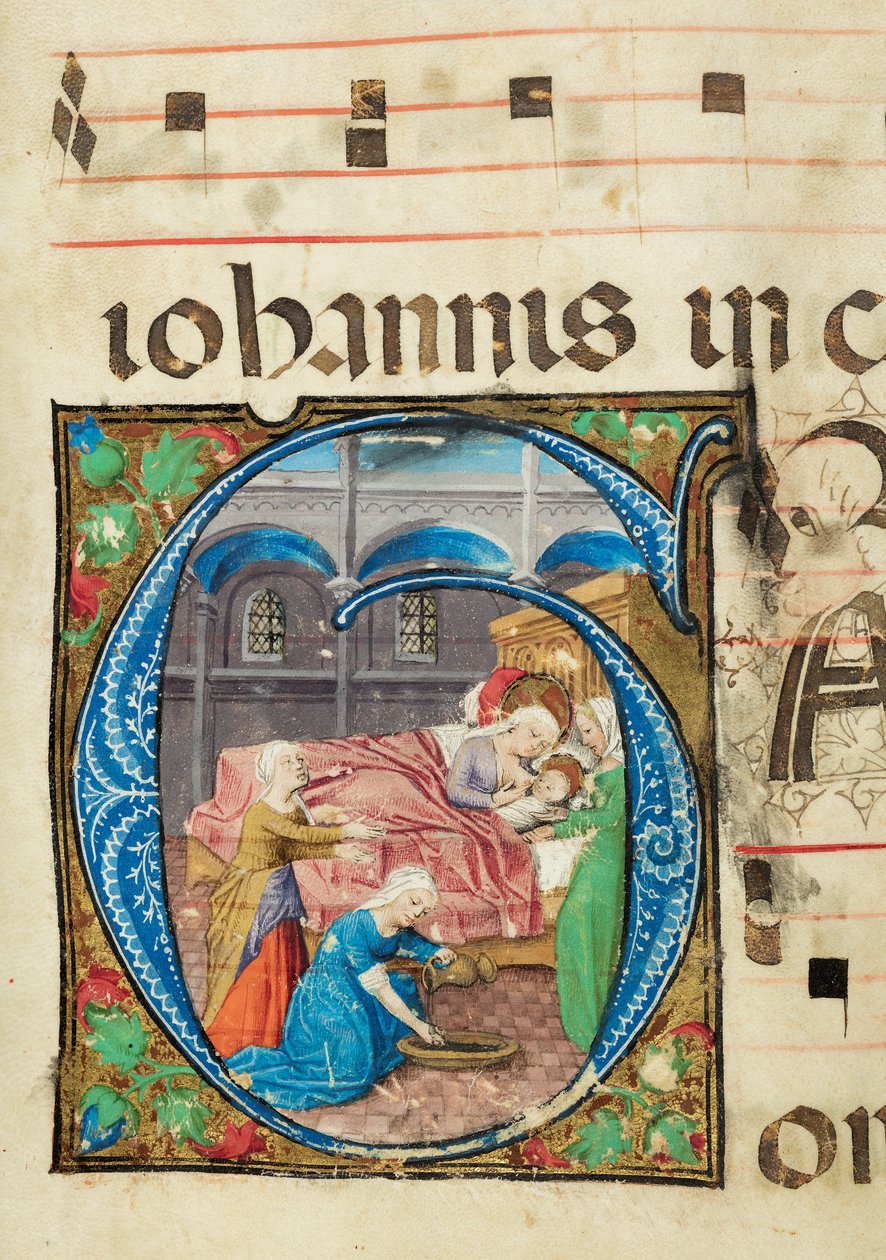 iohannis in c
G A
on